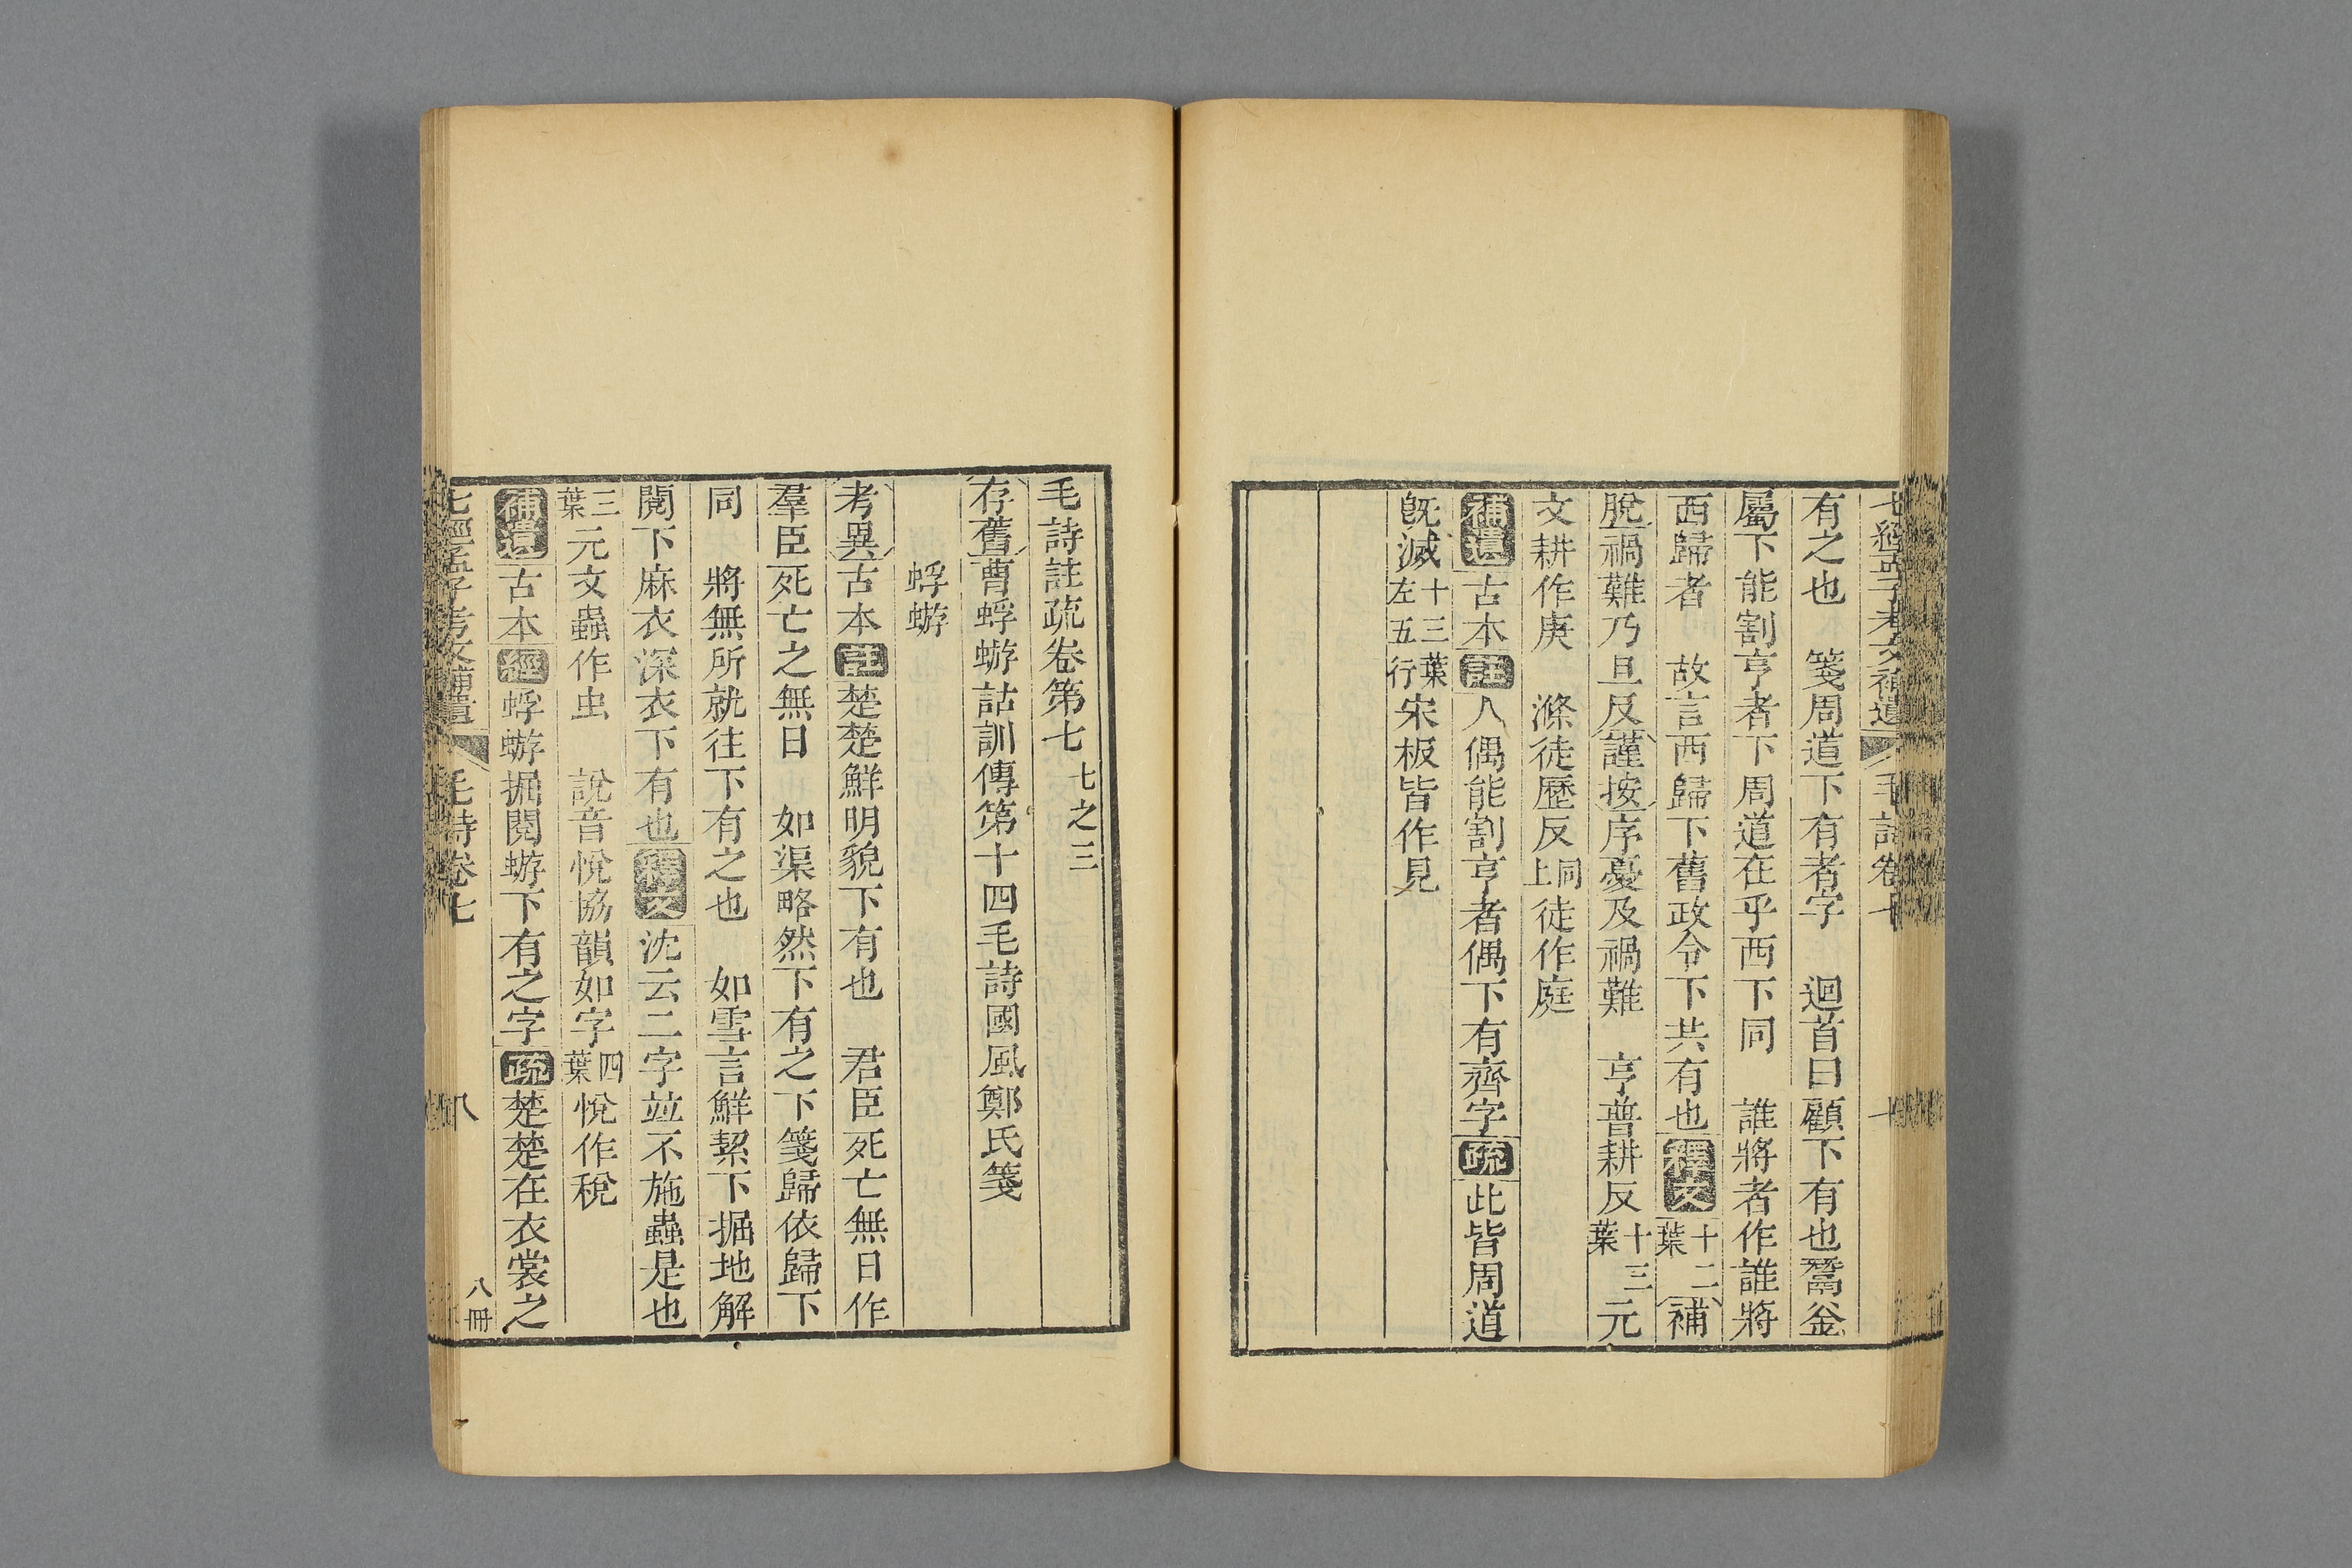 七經孟子考文補遺 毛詩卷七
有之也　箋周道下有者字　迴首曰顧下有也鬵釜
屬下能割亨者下周道在乎西下同　誰將者作誰將
西歸者　故言西歸下舊政令下共有也釋文十二葉補
脫禍難乃旦反謹按序憂及禍難　亨普耕反十三葉元
文耕作庚　滌徒歷反同上徒作庭
補遺古本註人偶能割亨者偶下有齊字疏此皆周道
旣滅十三葉左五行宋板皆作見
毛詩註疏卷第七七之三
存舊曹蜉蝣詁訓傳第十四毛詩國風鄭氏箋
蜉蝣
考異古本註楚楚鮮明貌下有也　君臣死亡無日作
羣臣死亡之無日　如渠略然下有之下箋歸依歸下
同　將無所就往下有之也　如雪言鮮絜下掘地解
閱下麻衣深衣下有也釋文沈云二字並不施蟲是也
三葉元文蟲作虫　說音悅協韻如字四葉悅作稅
補遺古本經蜉蝣掘閱蝣下有之字疏楚楚在衣裳之
七經孟子考文補遺 毛詩卷七 八 八冊